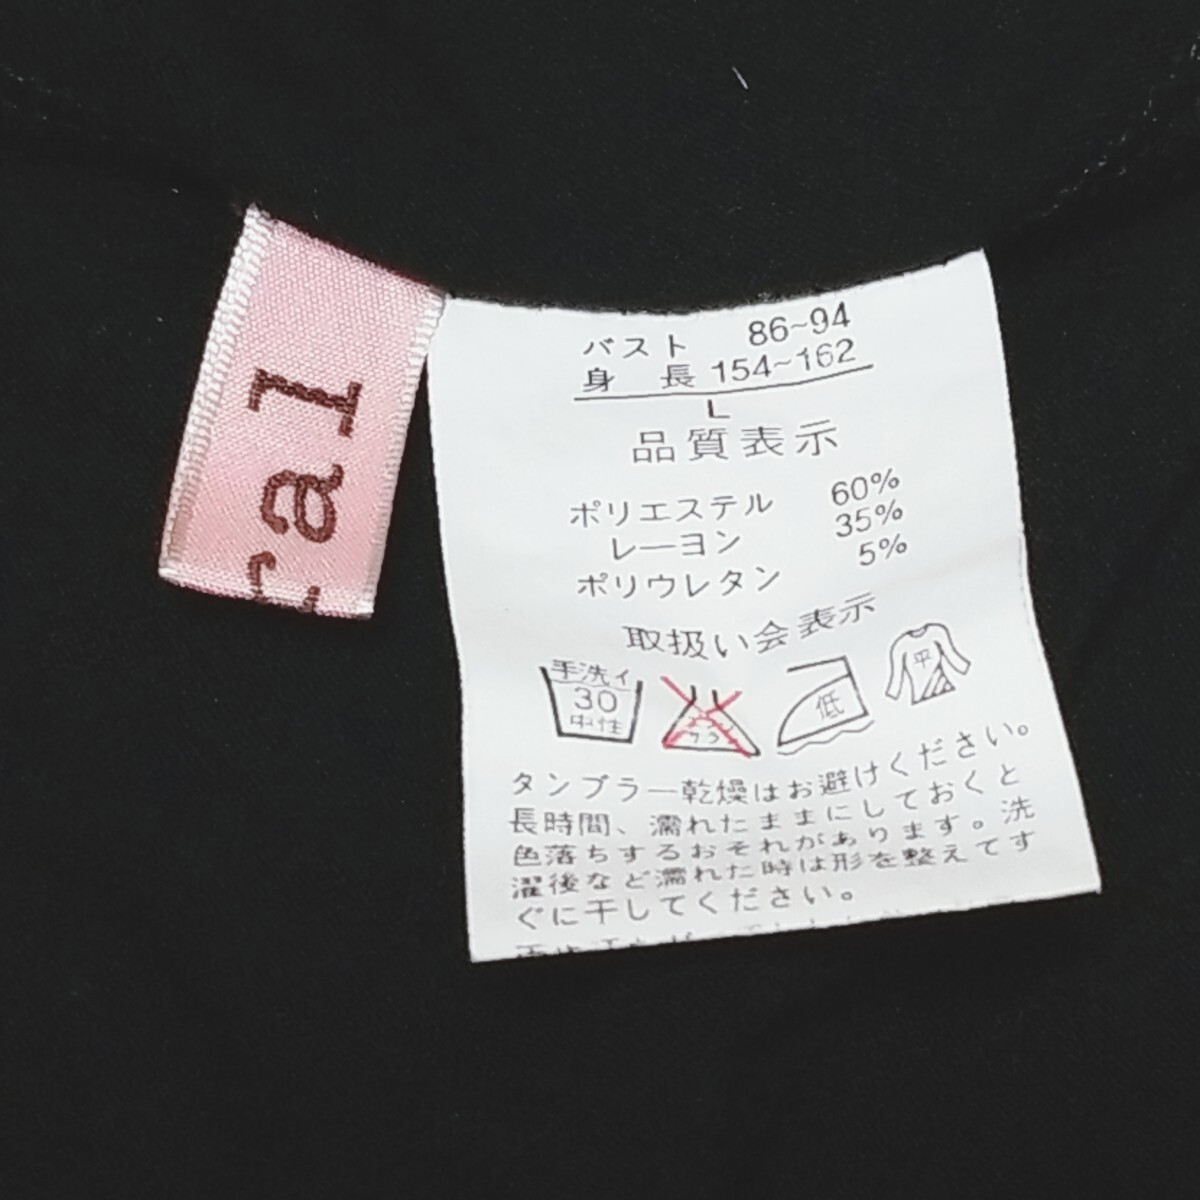 ral
バスト 86~94
身 長 154~162
L
品質表示
ポリエステル 60%
レーヨン 35%
ポリウレタン 5%
取扱い会表示
手洗イ
30
中性
低
平
タンブラー乾燥はお避けください。
長時間、濡れたままにしておくと
色落ちするおそれがあります。洗
濯後など濡れた時は形を整えてす
ぐに干してください。